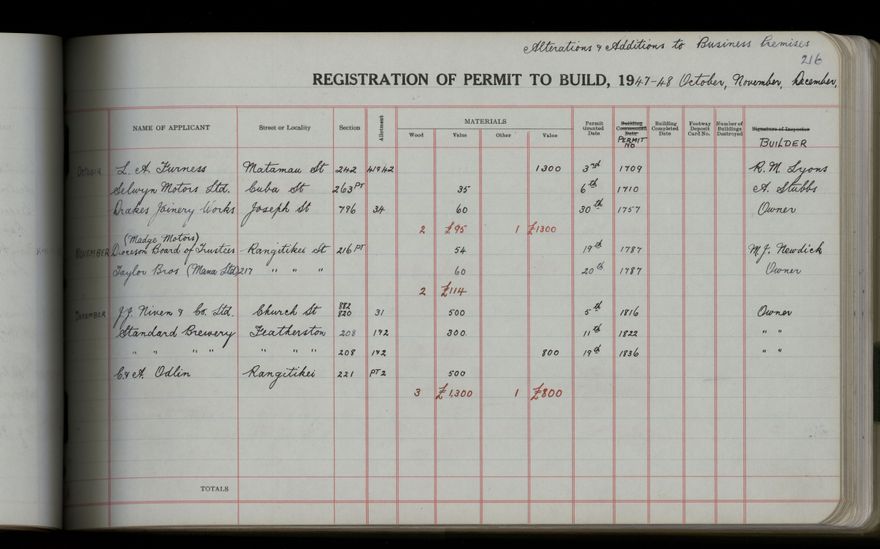 Alterations & Additions to Business Premises
216
REGISTRATION OF PERMIT TO BUILD, 1947-48 October, November, December,
NAME OF APPLICANT Street or Locality Section Allotment MATERIALS Permit Granted Date Building Commenced Date PERMIT NO Building Completed Date Footway Deposit Card No. Number of Buildings Destroyed Signature of Inspector BUILDER
Wood Value Other Value
October L. A. Furness Matamau St 242 41942 1300 3rd 1709 R. M. Lyons
Selwyn Motors Ltd. Cuba St 263 PT 35 6th 1710 A. Stubbs
Drakes Joinery Works Joseph St 796 34 60 30th 1757 Owner
2 £95 1 £1300
(Madge Motors)
NOVEMBER Diocesan Board of Trustees Rangitikei St 216 PT 54 19th 1787 M. J. Newdick
Taylor Bros (Mana Ltd) 217 " " " 60 20th 1787 Owner
2 £114
DECEMBER J. J. Niven & Co. Ltd. Church St 882 820 31 500 5th 1816 Owner
Standard Brewery Featherston 208 192 300 11th 1822 " "
" " " " " " " 208 192 800 19th 1836 " "
C & A. Odlin Rangitikei 221 PT 2 500
3 £1,300 1 £800
TOTALS